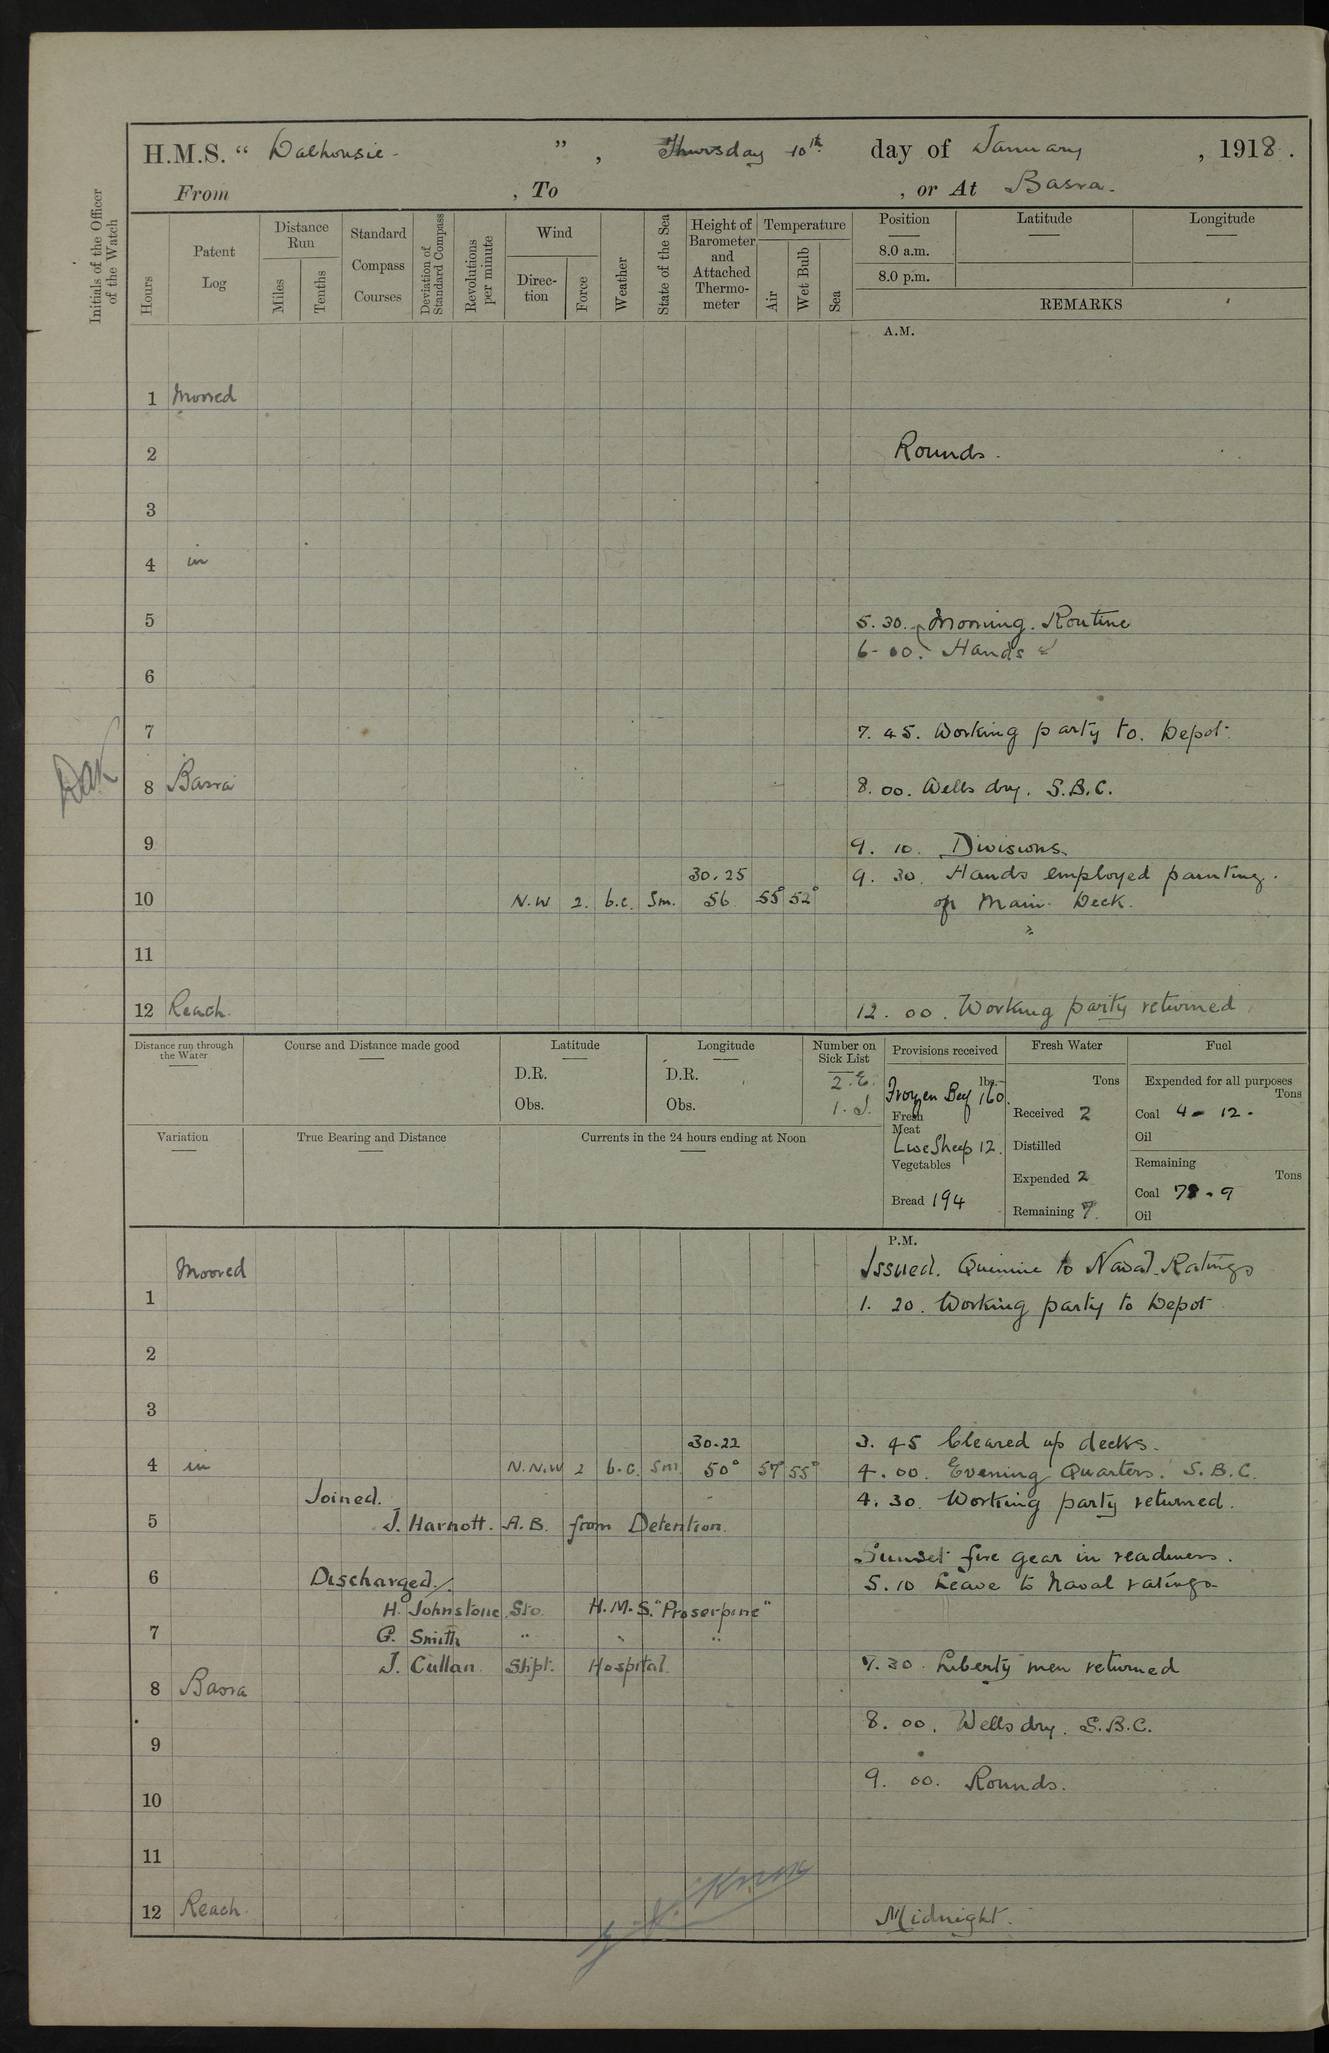 H.M.S. " Dalhousie - " , Thursday 10th day of January , 1918 .
From , To , or At Basra .
Initials of the Officer of the Watch
Hours
Patent Log
Distance Run
Miles
Tenths
Standard Compass Courses
Deviation of Standard Compass
Revolutions per minute
Wind
Direction
Force
Weather
State of the Sea
Height of Barometer and Attached Thermometer
Temperature
Air
Wet Bulb
Sea
Position Latitude Longitude
8.0 a.m.
8.0 p.m.
REMARKS
A.M.
1 Moored
2 Rounds .
3
4 in
5 5. 30. Morning . Routine
6- 00. Hands
6
7 7. 45. Working party to . Depot .
8 Basra 8. 00. Wells dry . S.B.C.
9 9. 10. Divisions
30.25 9. 30. Hands employed painting .
10 N.W 2. b.c. Sm. 56 55° 52° on Main Deck .
11
12 Reach . 12 . 00 . Working party returned
Distance run through the Water
Course and Distance made good
Latitude
D.R.
Obs.
Longitude
D.R.
Obs.
Number on Sick List
2. E.
1. I.
Provisions received
lbs.
Frozen Beef 160.
Fresh Meat
Live Sheep 12.
Vegetables
Bread 194
Fresh Water
Tons
Received 2
Distilled
Expended 2
Remaining 7.
Fuel
Expended for all purposes
Tons
Coal 4 - 12 -
Oil
Remaining
Tons
Coal 78 - 9
Oil
Variation
True Bearing and Distance
Currents in the 24 hours ending at Noon
P.M.
Moored Issued . Quinine to Naval . Ratings
1 1. 20 . Working party to Depot
2
3
30.22 3. 45 Cleared up decks .
4 in N.N.W 2 b.c. Sm. 50° 57° 55° 4.00. Evening Quarters . S.B.C.
Joined . 4. 30. Working party returned .
5 J. Harnott . A.B. from Detention .
Sunset fire gear in readiness .
6 Discharged 5.10 Leave to Naval ratings
H. Johnstone Sto. H.M.S. "Proserpine"
7 G. Smith " " "
J. Cullan Shpt. Hospital 7.30. Liberty men returned
8 Basra
8. 00. Wells dry . S.B.C.
9
9. 00. Rounds .
10
11
12 Reach Midnight .